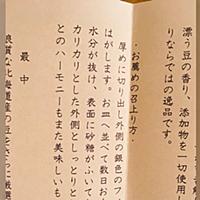 漂う豆の香り、添加物を一切使用し
りならではの逸品です。
・お薦めの召上り方・
厚めに切り出し外側の銀色のフ
はがします。お皿へ並べて数日お
水分が抜け、表面に砂糖がふいて
カリカリとした外側としっとりと
とのハーモニーもまた美味しいも
最中
北海道産の豆を